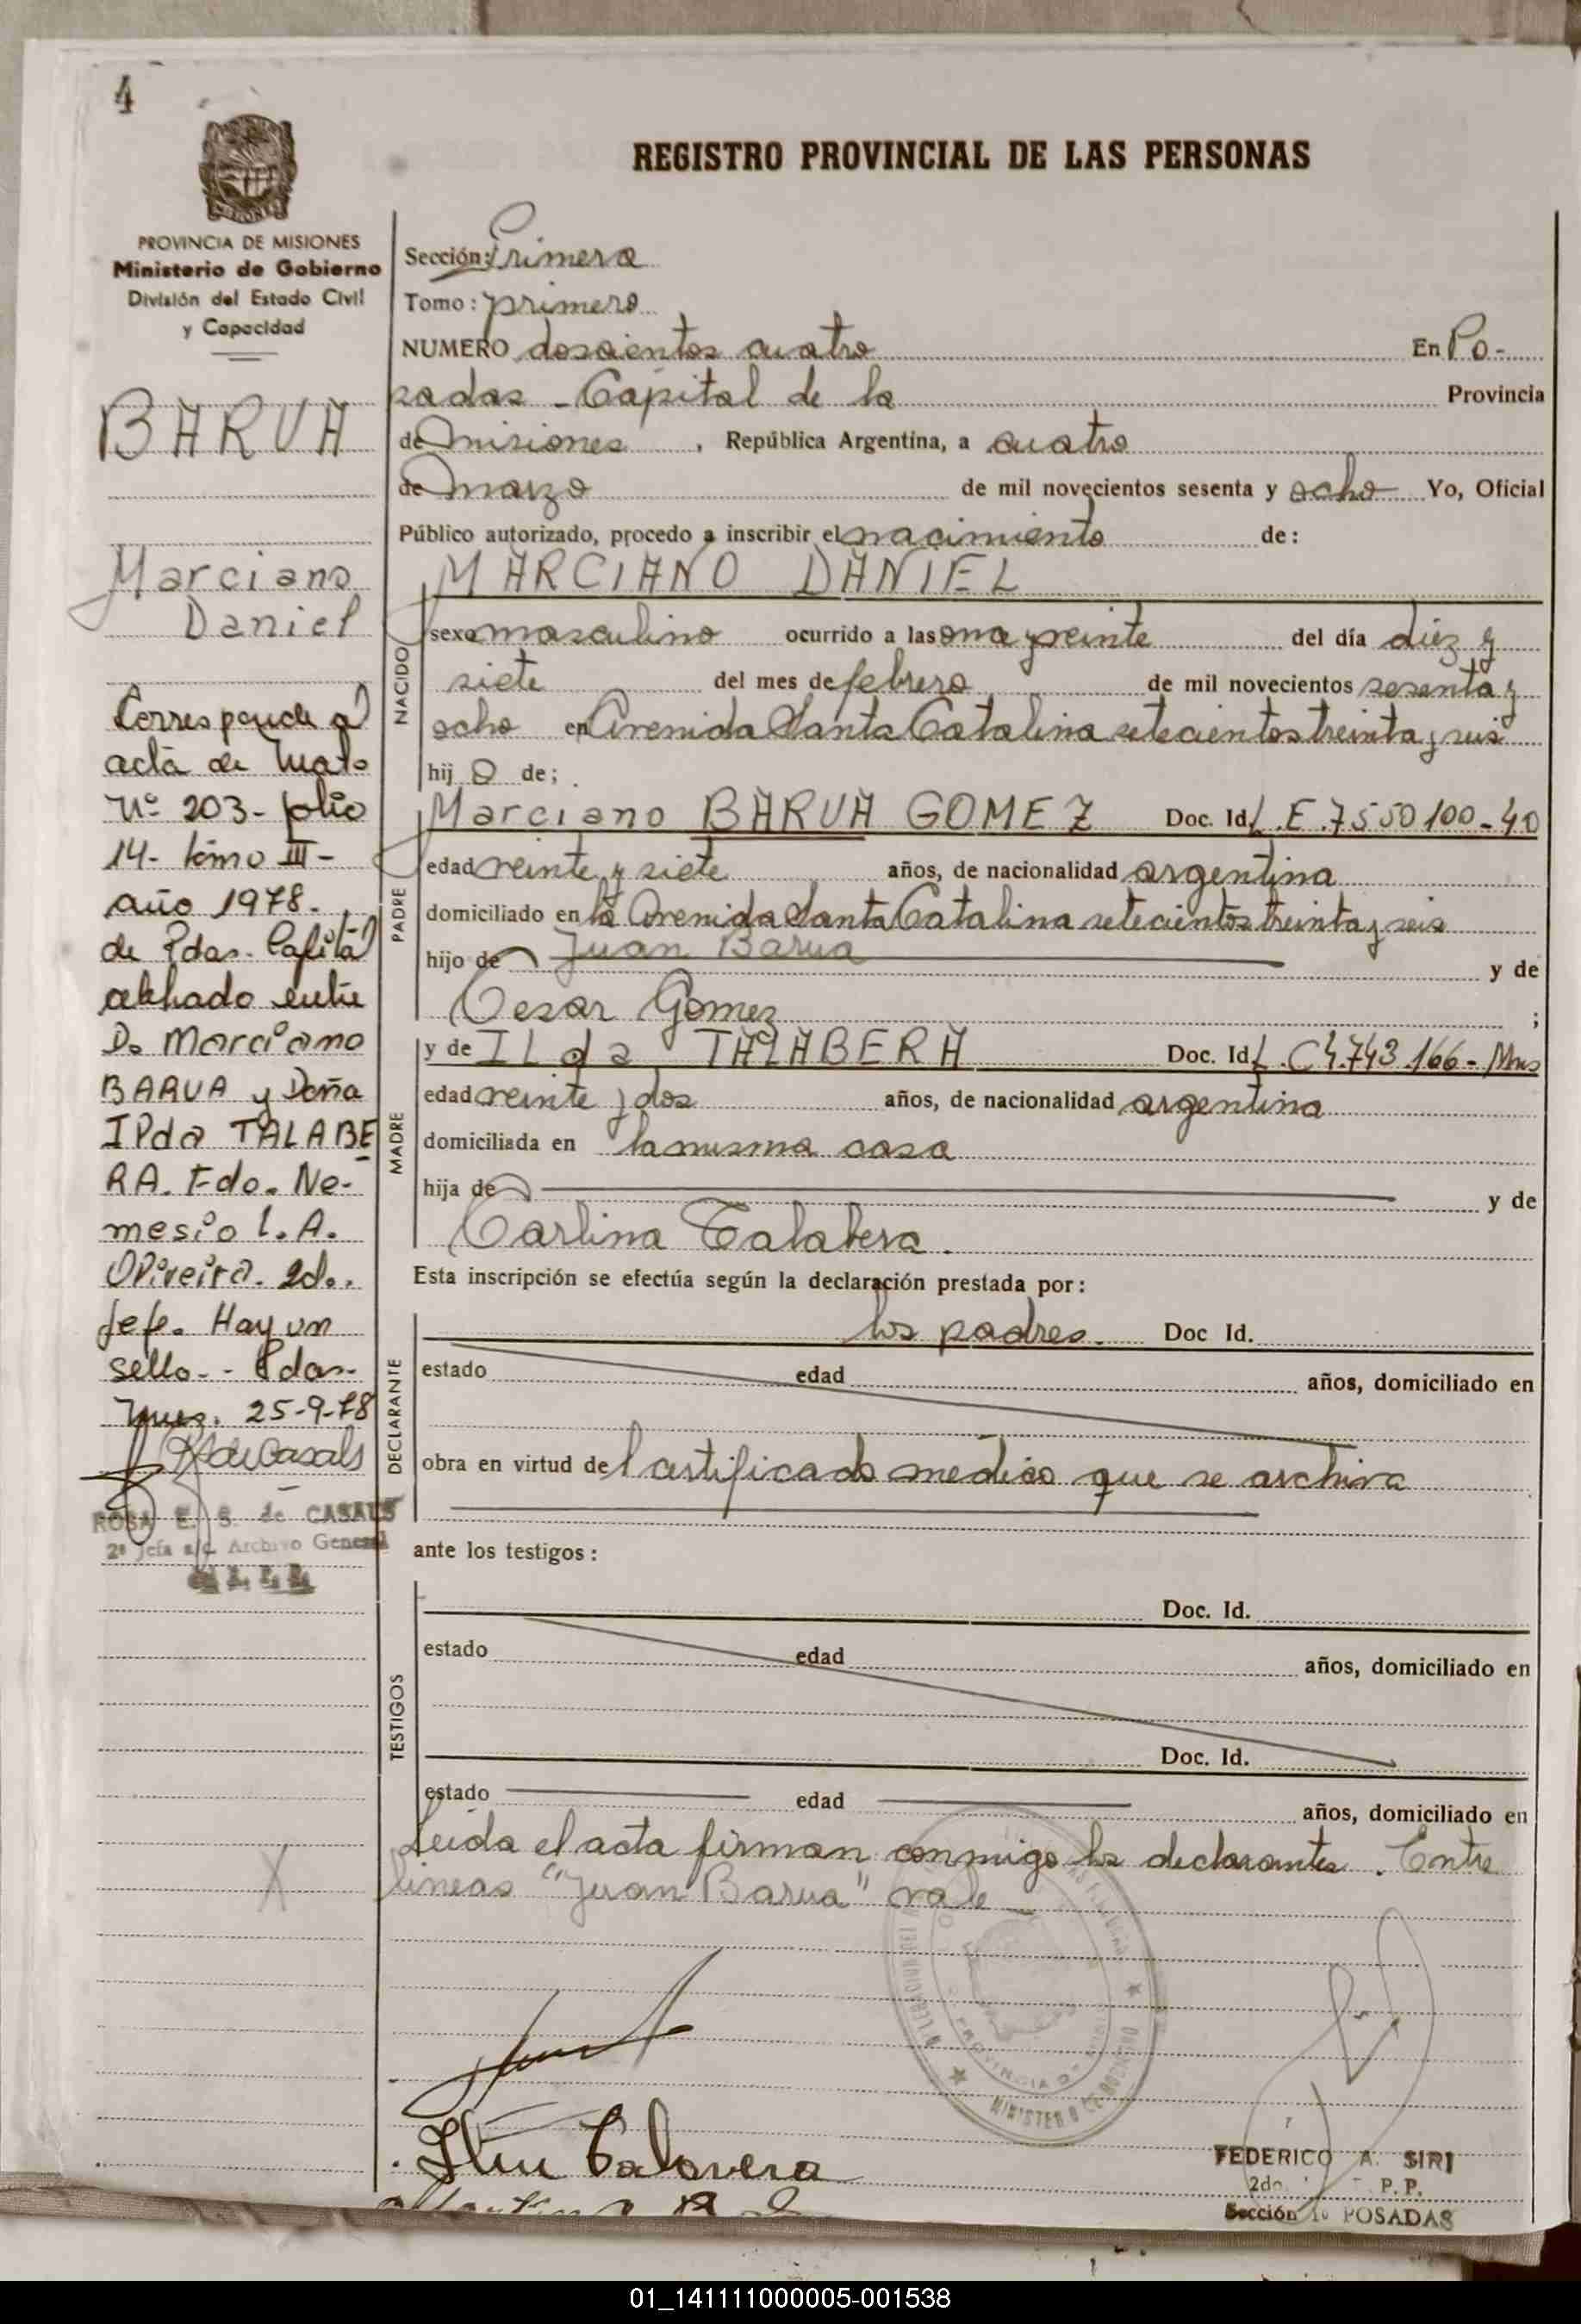 4
REGISTRO PROVINCIAL DE LAS PERSONAS
PROVINCIA DE MISIONES
Ministerio de Gobierno
División del Estado Civil
y Capacidad
BARUA
Marciano
Daniel
Corresponde al
acta de Mat⁰
Nº 203- folio
14- tomo III-
año 1978.
de Pdas. Capital
labrado entre
Dn Marciano
BARUA y Doña
Ilda TALABE
RA. Fdo. Ne-
mesio L. A.
Oliveira. 2do.
Jefe. Hay un
sello.- Pdas.
Mnes. 25-9-78
R S de Casals
ROSA E. S. de CASALS
2ª Jefa a/c. Archivo General
Sección: Primera
Tomo: primero
NUMERO doscientos cuatro En Po-
sadas - Capital de la Provincia
de misiones, República Argentina, a cuatro
de marzo de mil novecientos sesenta y ocho Yo, Oficial
Público autorizado, procedo a inscribir el nacimiento de:
MARCIANO DANIEL
NACIDO
sexo masculino ocurrido a las once y veinte del día diez y
siete del mes de febrero de mil novecientos sesenta y
ocho en Avenida Santa Catalina setecientos treinta y seis
hij o de;
PADRE
Marciano BARUA GOMEZ Doc. Id. L.E.7550100-40
edad veinte y siete años, de nacionalidad argentina
domiciliado en la Avenida Santa Catalina setecientos treinta y seis
hijo de Juan Barua y de
Cesar Gomez ;
MADRE
y de ILda TALABERA Doc. Id. L.C 4.743.166- Mns
edad veinte y dos años, de nacionalidad argentina
domiciliada en la misma casa
hija de y de
Carlina Talabera.
Esta inscripción se efectúa según la declaración prestada por:
DECLARANTE
los padres. Doc Id.
estado edad años, domiciliado en
obra en virtud del certificado médico que se archiva
ante los testigos:
TESTIGOS
Doc. Id.
estado edad años, domiciliado en
Doc. Id.
estado edad años, domiciliado en
Leida el acta firman conmigo los declarantes. Entre
lineas "Juan Barua" vale
PROVINCIA DE
MINISTERIO DE GOBIERNO
Talavera
FEDERICO A. SIRI
2do P. P.
Sección 1º POSADAS
01_141111000005-001538